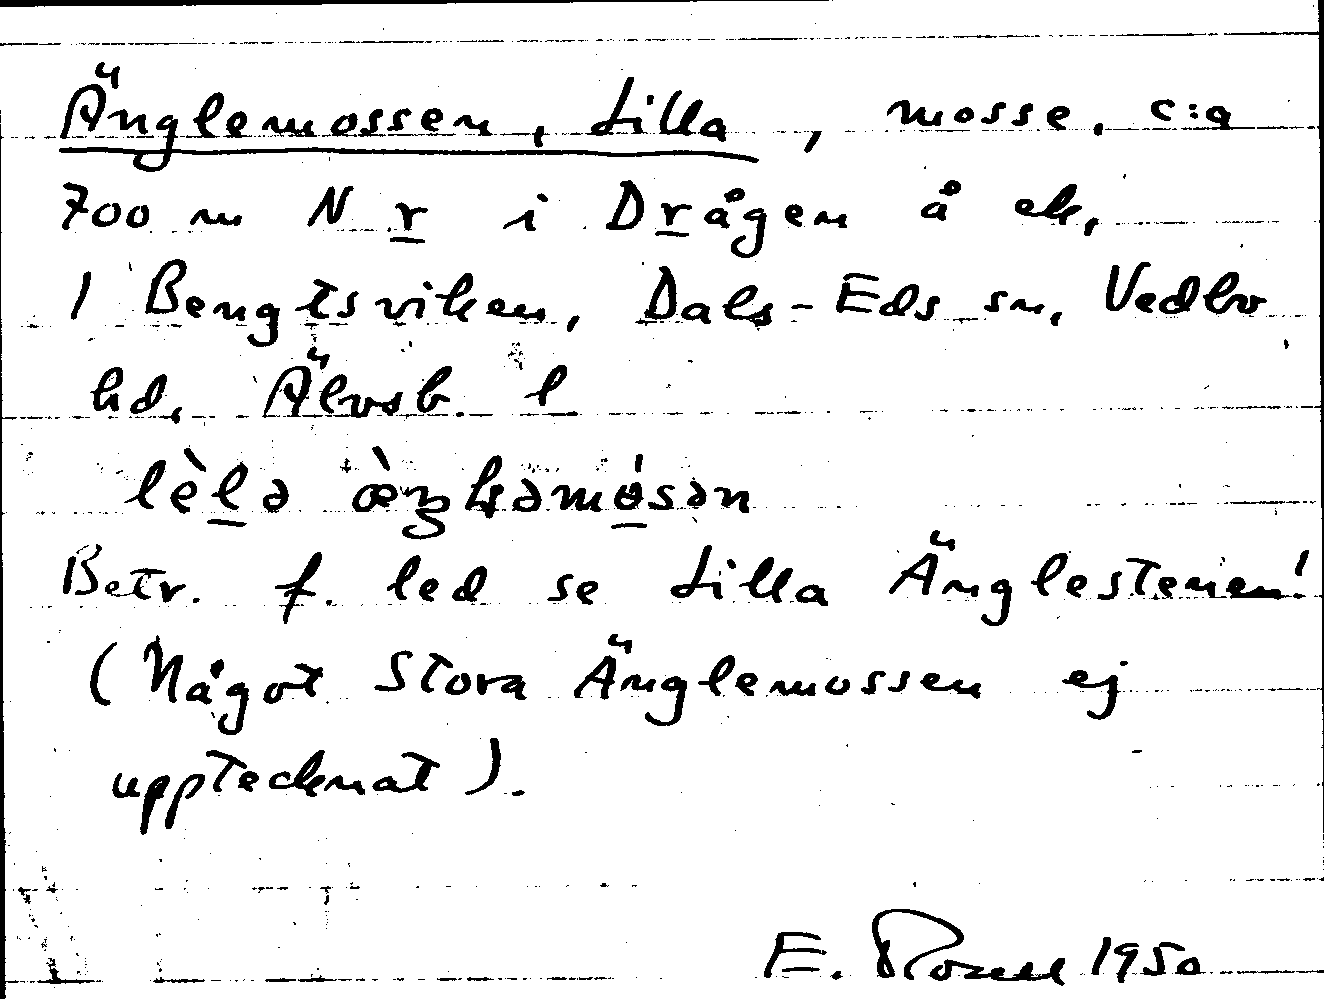 Änglemossen, Lilla, mosse, c:a
700 m N r i Drågen å ek,
1 Bengtsviken, Dals-Eds sn, Vedbo
hd, Älvsb. l
Betr. f. led se Lilla Änglestenen!
(Något Stora Änglemossen ej
upptecknat).
E. 1950